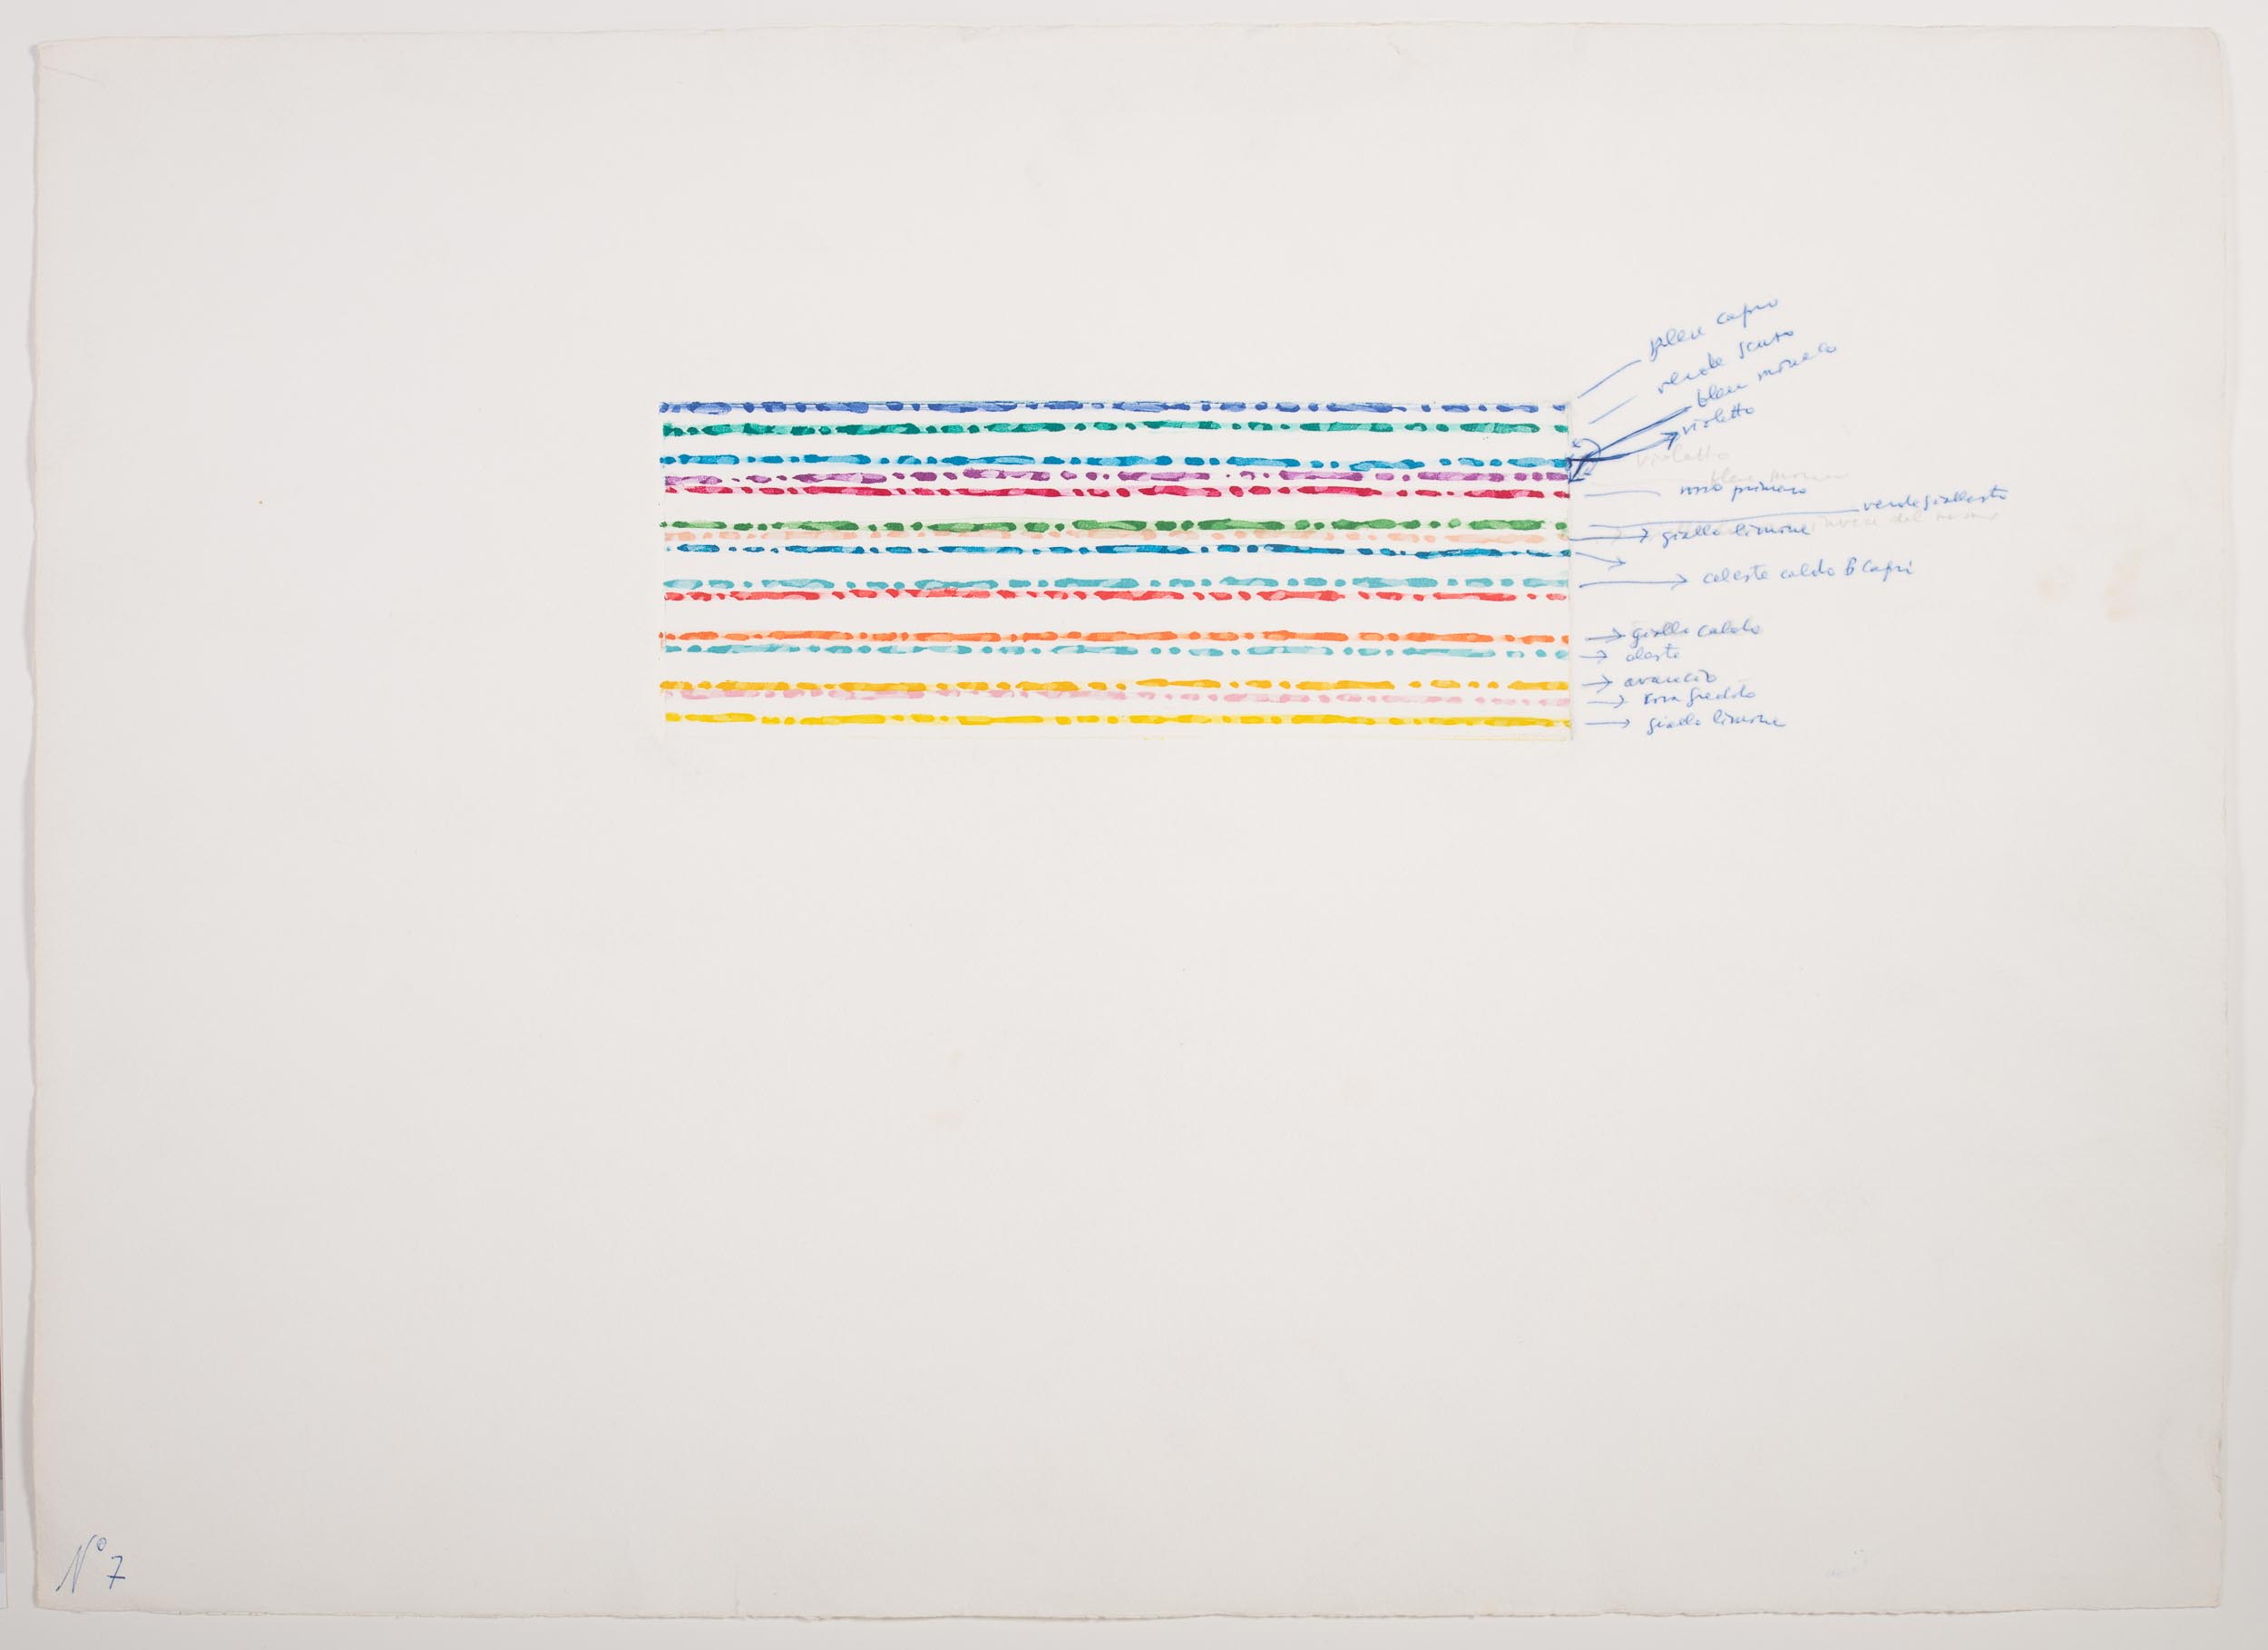 bleu capri
verde scuro
bleu monaco
violetto
violetto
bleu monaco
rosso primario
verde giallasto
giallo limone invece del
celeste caldo B Capri
giallo caldo
celeste
arancio
rosa freddo
giallo limone
N° 7